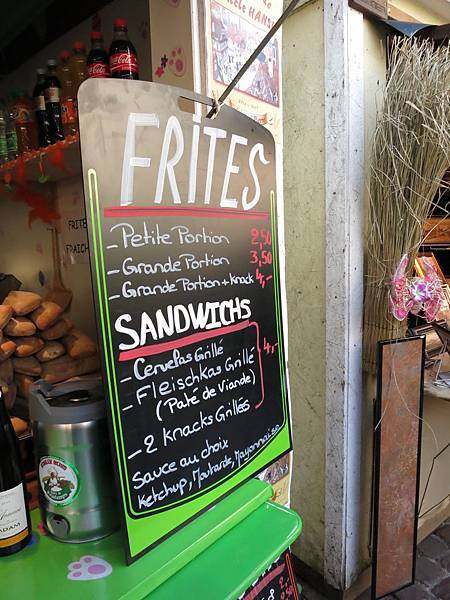 FRITES
- Petite Portion 2,50
- Grande Portion 3,50
- Grande Portion + Knack 4,-
SANDWICHS
- Cervelas Grillé
- Fleischkas Grillé 4,-
(Paté de Viande)
- 2 Knacks Grillées
Sauce au choix
Ketchup, Moutarde, Mayonnaise
Coca-Cola
Coca-Cola
FRITE
FRAICH
ADAM